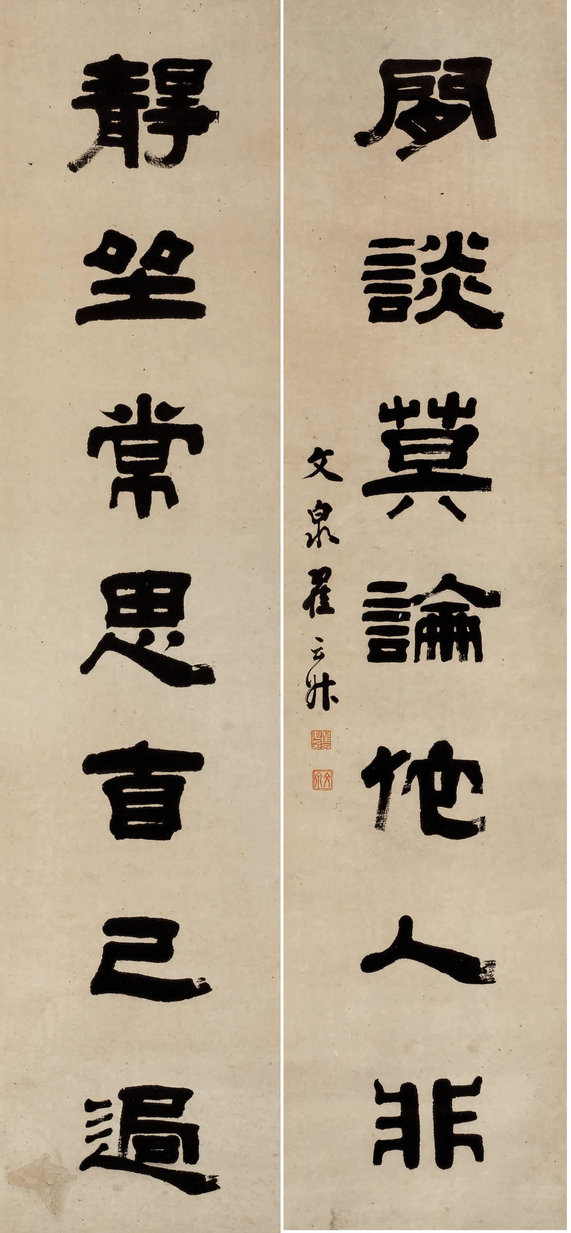 閒談莫論他人非
文泉翟云升
靜坐常思自己過